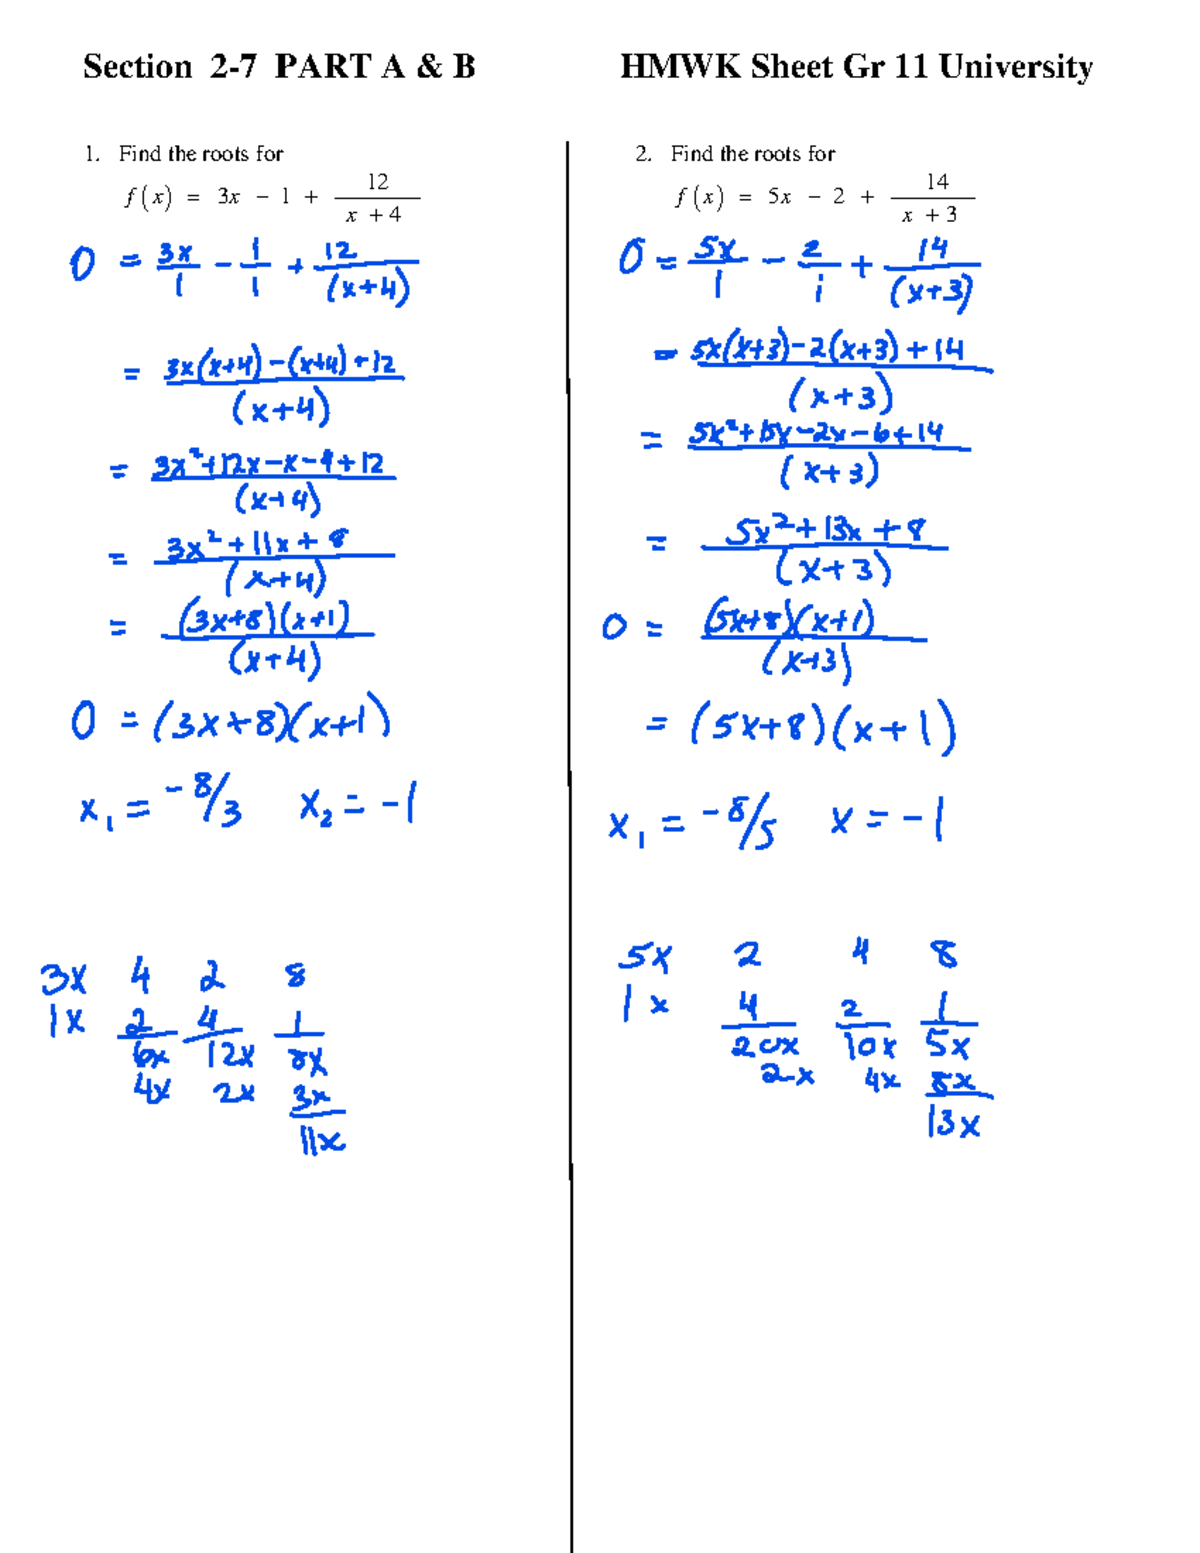 Section 2-7 PART A & B HMWK Sheet Gr 11 University
1. Find the roots for
f(x) = 3x - 1 + 12/(x + 4)
0 = 3x/1 - 1/1 + 12/(x+4)
= (3x(x+4)-(x+4)+12)/(x+4)
= (3x²+12x-x-4+12)/(x+4)
= (3x²+11x+8)/(x+4)
= (3x+8)(x+1)/(x+4)
0 = (3x+8)(x+1)
x₁ = -8/3 x₂ = -1
3x 4 2 8
1x 2 4 1
6x 12x 8x
4x 2x 3x
11x
2. Find the roots for
f(x) = 5x - 2 + 14/(x + 3)
0 = 5x/1 - 2/1 + 14/(x+3)
= (5x(x+3)-2(x+3)+14)/(x+3)
= (5x²+15x-2x-6+14)/(x+3)
= (5x²+13x+8)/(x+3)
0 = (5x+8)(x+1)/(x+3)
= (5x+8)(x+1)
x₁ = -8/5 x = -1
5x 2 4 8
1x 4 2 1
20x 10x 5x
2x 4x 8x
13x